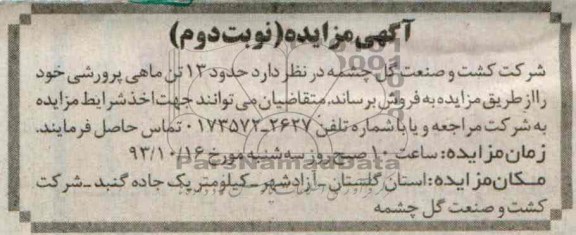 آگهی مزایده (نوبت دوم)
شرکت کشت و صنعت گل چشمه در نظر دارد حدود ۱۳ تن ماهی پرورشی خود
را از طریق مزایده به فروش برساند. متقاضیان می توانند جهت اخذ شرایط مزایده
به شرکت مراجعه و یا با شماره تلفن ۲۶۲۷-۰۱۷۳۵۷۲ تماس حاصل فرمایند.
زمان مزایده: ساعت ۱۰ صبح روز سه شنبه مورخ ۹۳/۱۰/۱۶
مکان مزایده: استان گلستان - آزادشهر - کیلومتر یک جاده گنبد - شرکت
کشت و صنعت گل چشمه
ParsNamadData